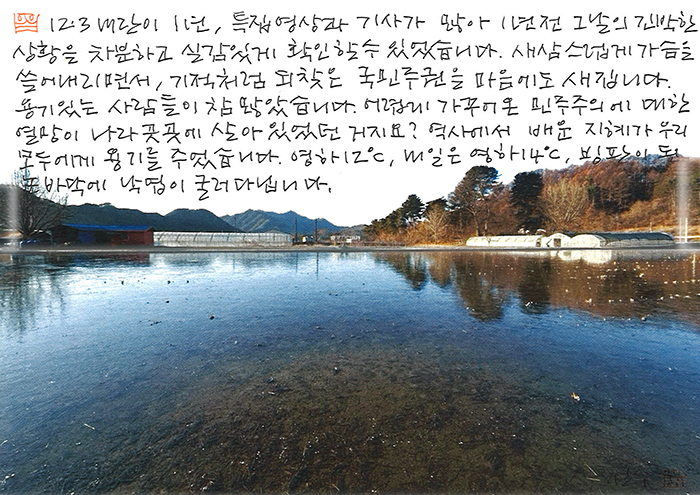 12.3 내란이 1년, 특집영상과 기사가 많아 1년전 그날의 긴박한
상황을 차분하고 실감있게 확인할 수 있었습니다. 새삼스럽게 가슴을
쓸어내리면서, 기적처럼 되찾은 국민주권을 마음에도 새깁니다.
용기있는 사람들이 참 많았습니다. 어렵게 가꾸어온 민주주의에 대한
열망이 나라곳곳에 살아 있었던 거지요? 역사에서 배운 지혜가 우리
모두에게 용기를 주었습니다. 영하 12℃, 내일은 영하 14℃, 빙판이 된
논바닥에 낙엽이 굴러다닙니다.